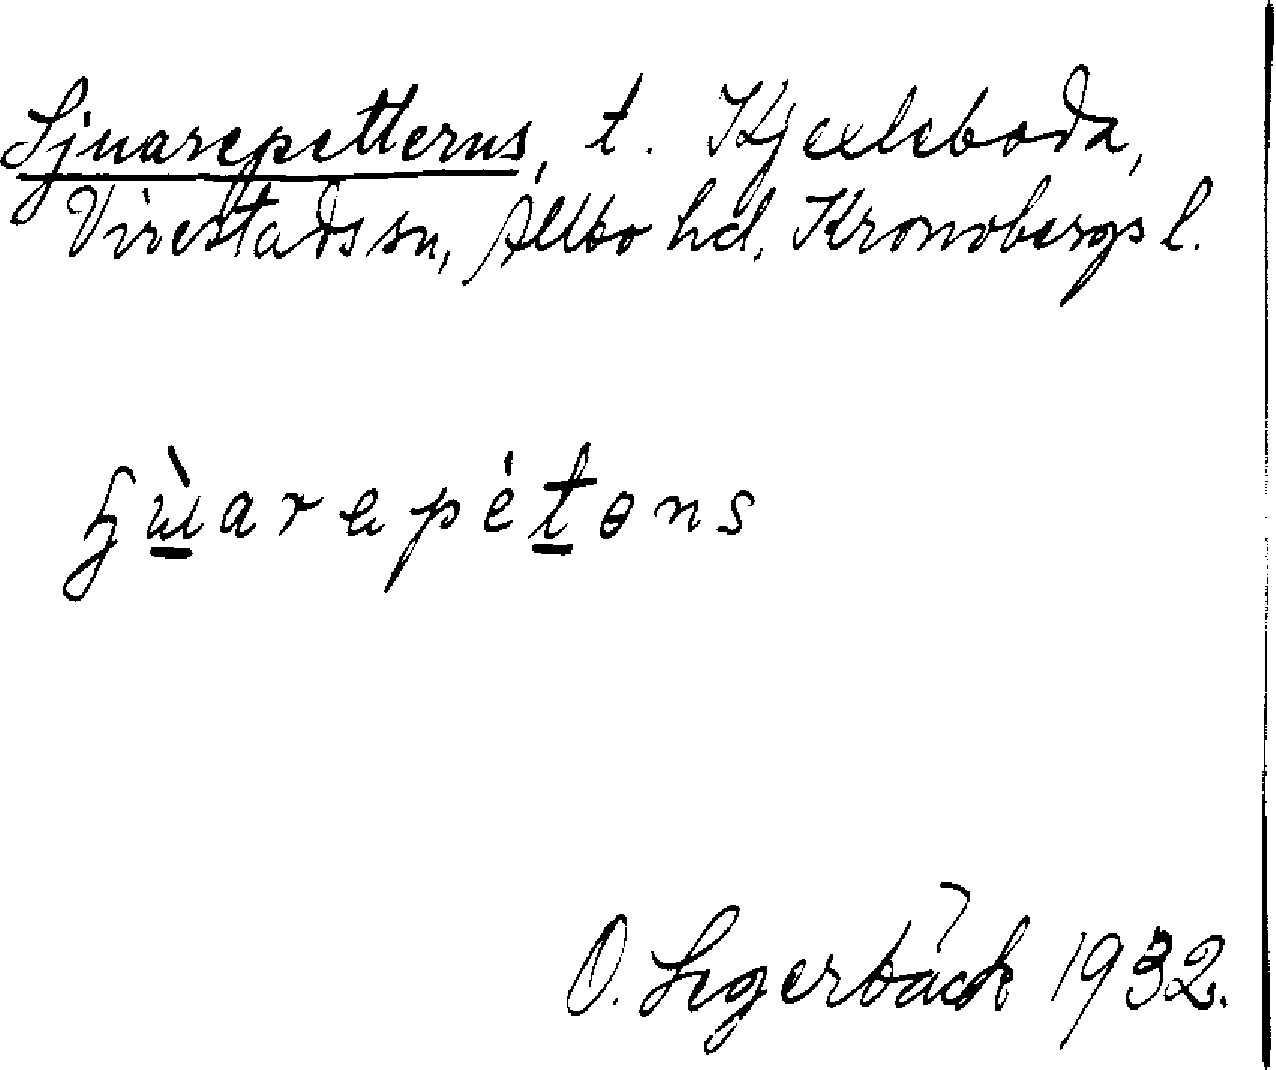 Sjuarepetterns, t. Kjexleboda,
Virestads sn, Allbo hd, Kronobergs l.
ɧu̠̇̀arepét̠ɵns
O. Segerbäck 1932.